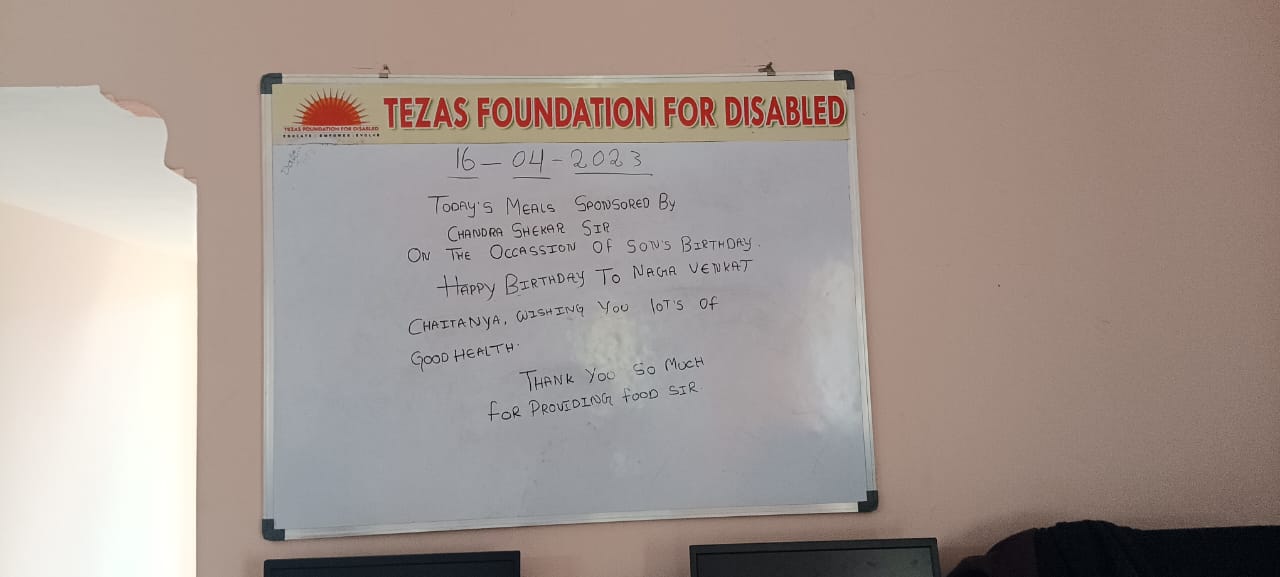 TEZAS FOUNDATION FOR DISABLED
TEZAS FOUNDATION FOR DISABLED
EDUCATE : EMPOWER : EVOLVE
Date
16-04-2023
TODAY'S MEALS SPONSORED By
CHANDRA SHEKAR SIR
ON THE OCCASSION Of SON'S BIRTHDAY.
HAPPY BIRTHDAY TO NAGA VENKAT
CHAITANYA, WISHING YOU lOT'S Of
GOOD HEALTH.
THANK YOU SO MUCH
fOR PROVIDING fOOD SIR.